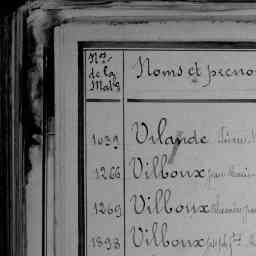 Nos
de la
Mats
Noms et préno
1039 Urlande
1266 Vilboux Jean Marie
1269 Vilboux
1898 Vilboux